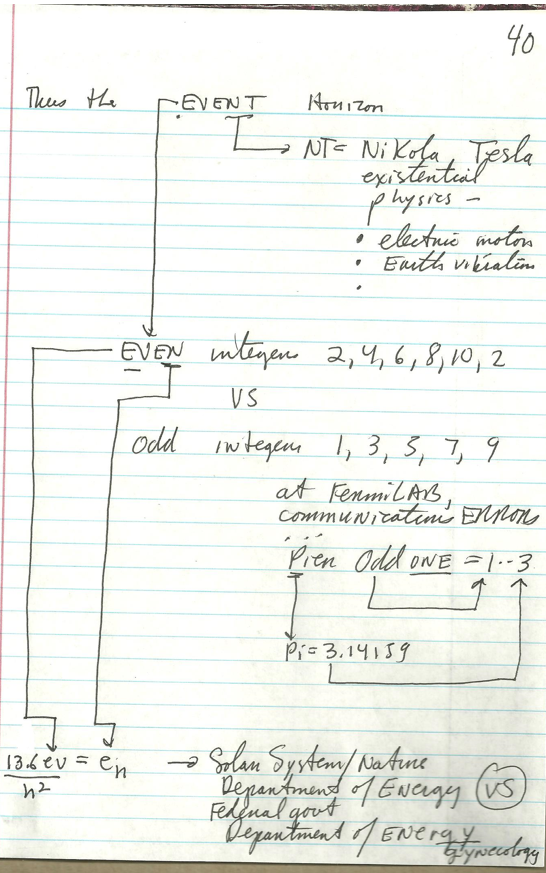 40
Thus the EVENT Horizon
NT = Nikola Tesla
existential
physics -
• electric motor
• Earth vibration
•
EVEN integers 2, 4, 6, 8, 10, 2
VS
Odd integers 1, 3, 5, 7, 9
at FermiLAB,
communications ERRORS
...
Pier Odd ONE = 1..3
Pi = 3.14159
13.6 ev / n² = en → Solar System/Nature
Department of Energy VS
Federal govt
Department of Energy
gynecology